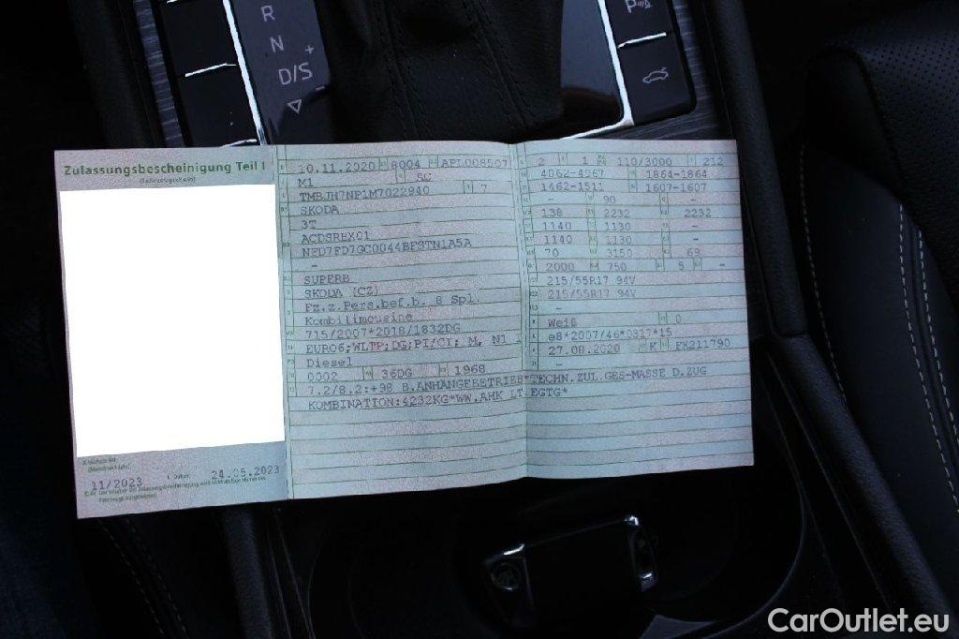 R
N
D/S
+
-
P
Zulassungsbescheinigung Teil I
(Fahrzeugschein)
11/2023
24.05.2023
10.11.2020 8004 APL008507
M1 SC
TMBJH7NP1M7022940 7
SKODA
3T
ACDSREX01
NFD7FD7GC0044BFSTN1A5A
-
SUPERB
SKODA (CZ)
Fz.z.Pers.bef.b. 8 Spl.
Kombilimousine
715/2007*2018/1832DG
EURO6;WLTP;DG;PI/CI; M, N1
Diesel
0002 36DG 1968
7.2/8.2:+98 B.ANHÄNGEBETRIEB*TECHN.ZUL.GES-MASSE D.ZUG
KOMBINATION:4232KG*WW.AHK LT.EGTG*
2 1 110/3000 212
1864-1864
1462-1511 1607-1607
- 90 -
138 2232 2232
1140 1130 -
1140 1130 -
70 3150 69
2000 750 5 -
215/55R17 94V
215/55R17 94V
-
Weiß 0
e8*2007/46*0317*15
27.08.2020 K FX211790
-
CarOutlet.eu